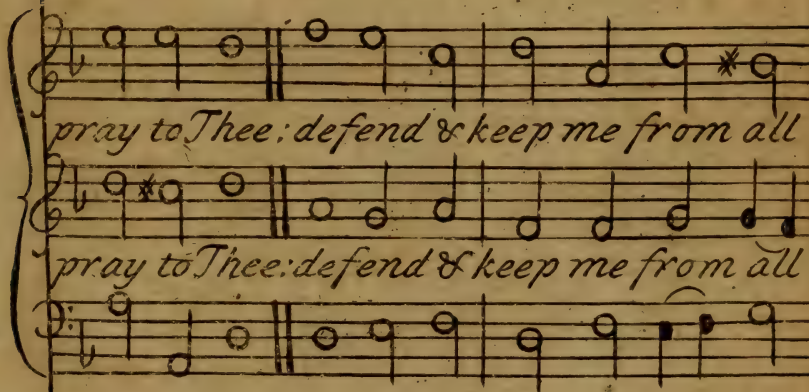 pray to Thee: defend & keep me from all
pray to Thee: defend & keep me from all